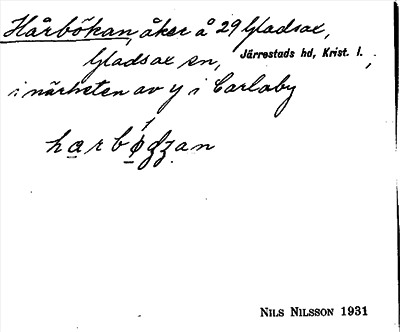 Hårbökan, åker å 29 Gladsax,
Gladsax sn, Järrestads hd, Krist. l. ;
i närheten av y i Carlaby
harbøgʒan
NILS NILSSON 1931